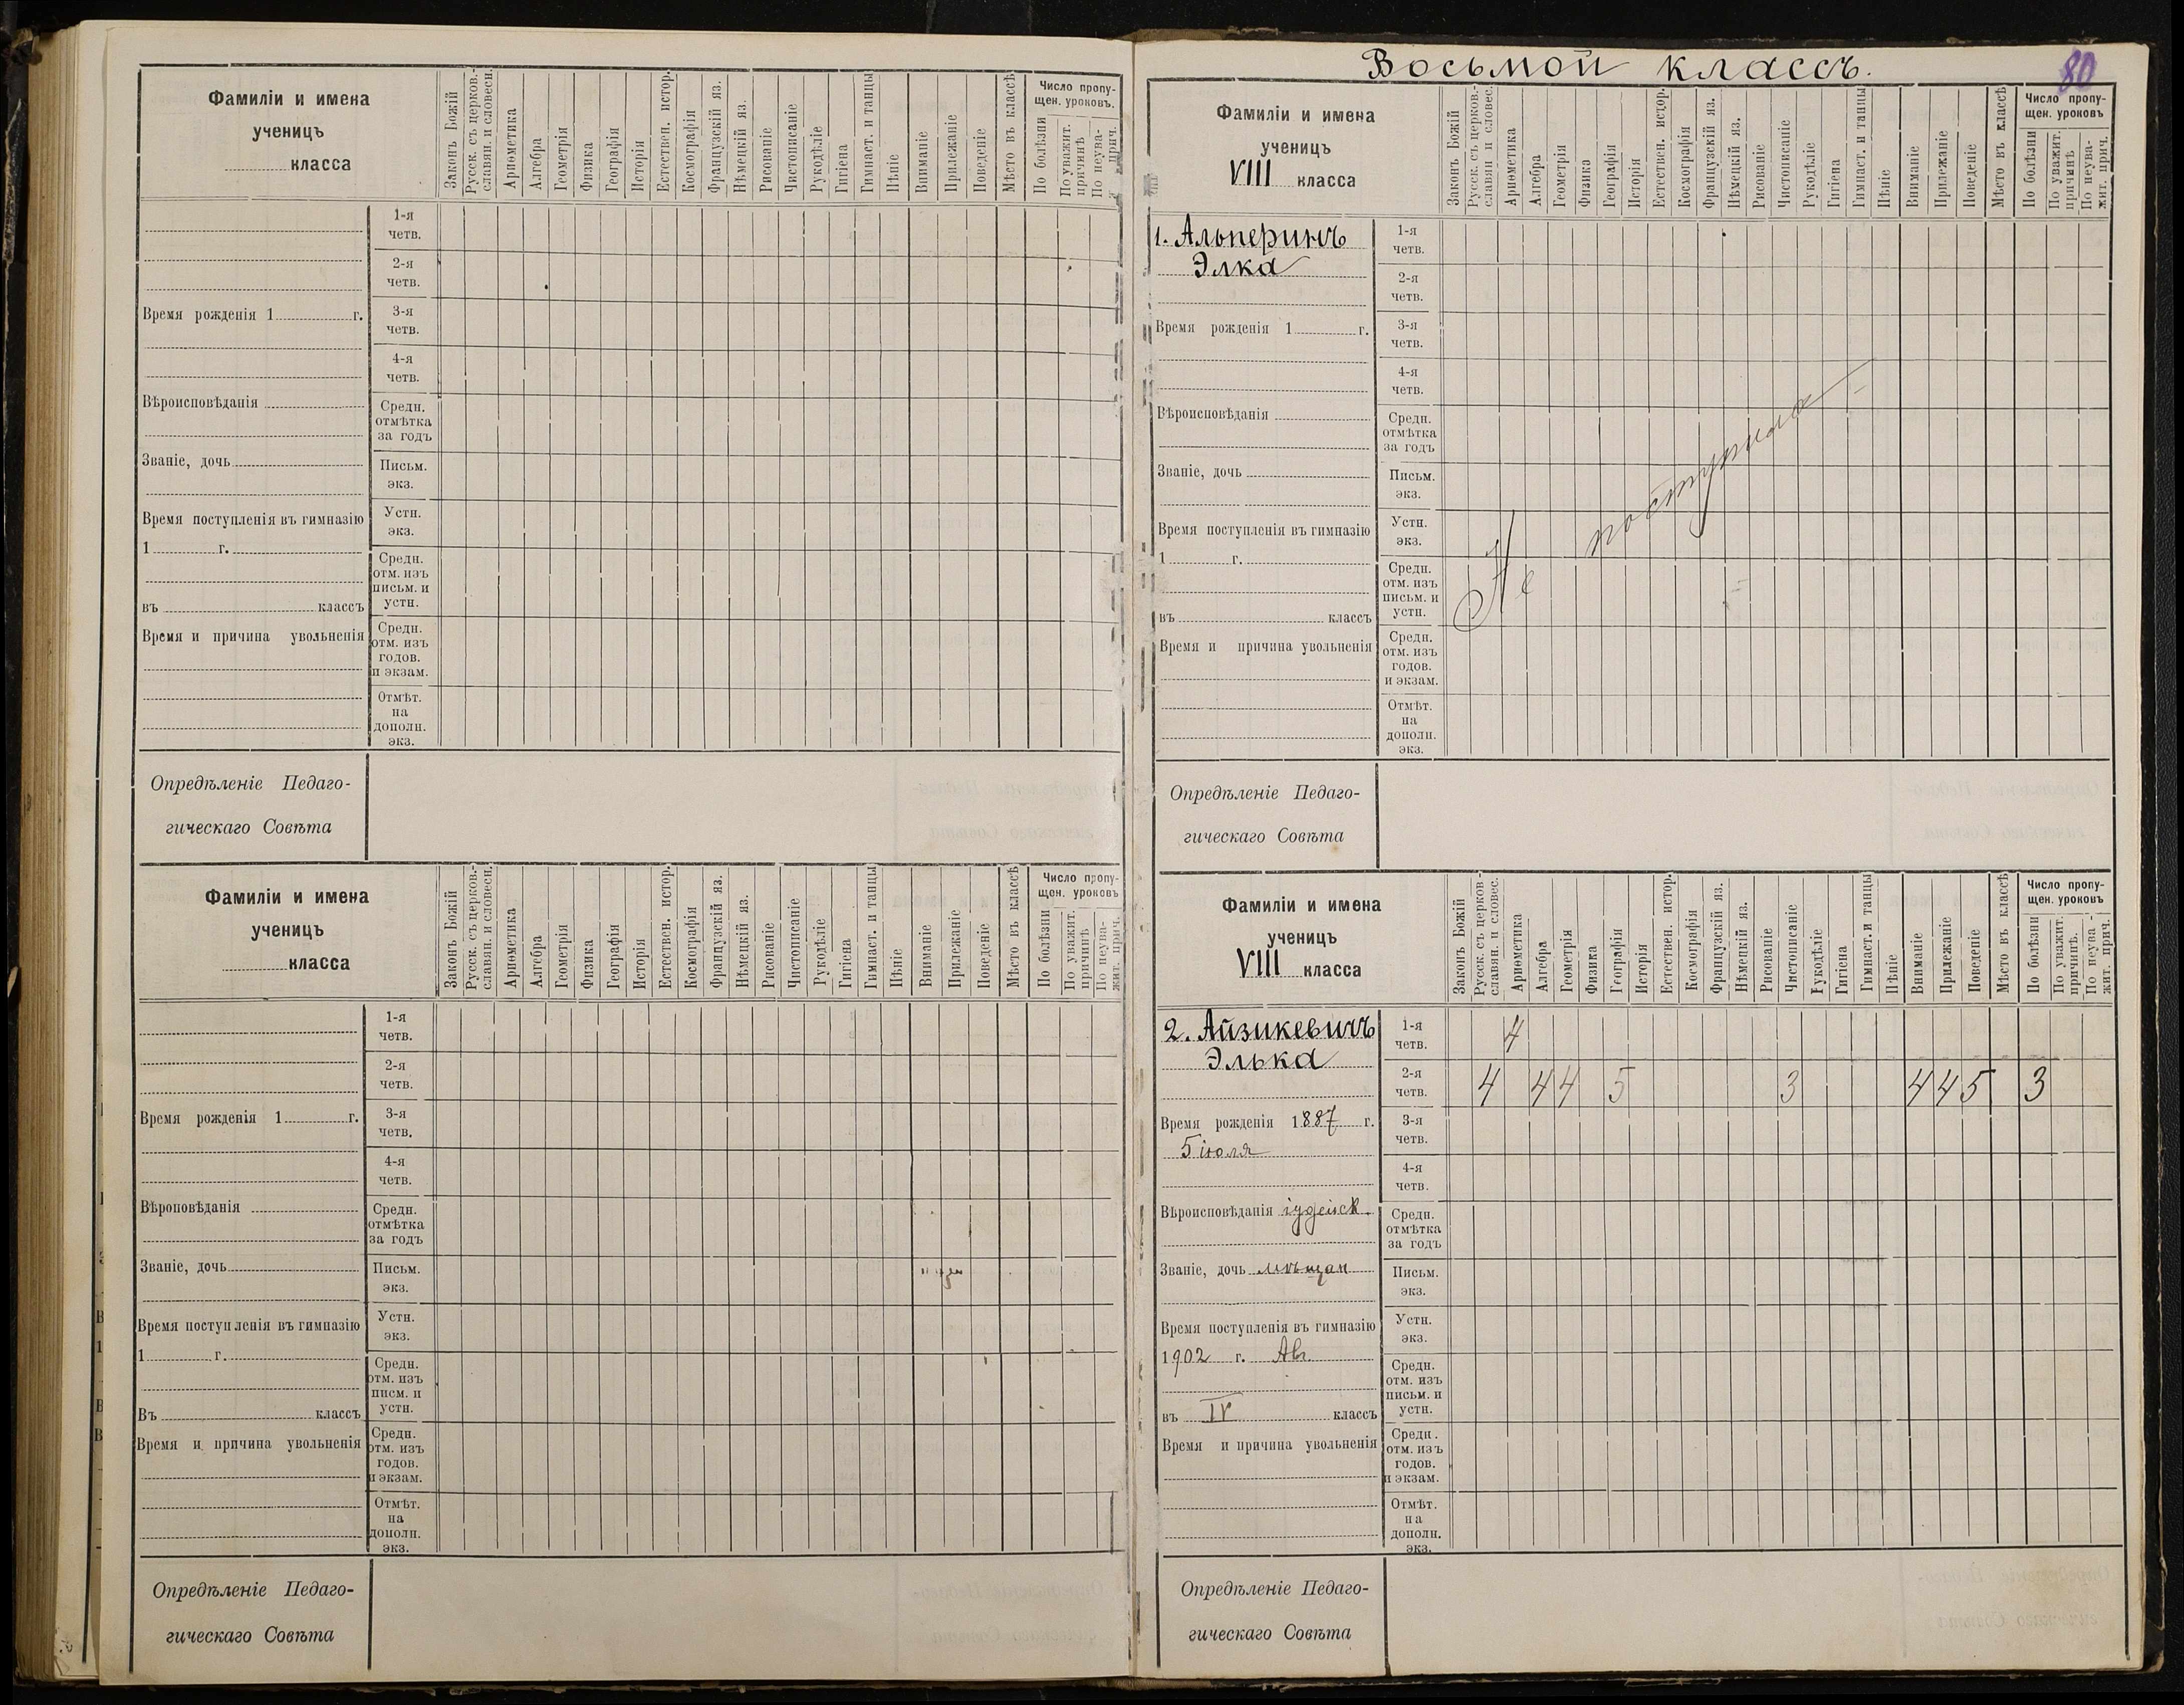 Фамиліи и имена
ученицъ
класса
Законъ Божій
Русск. съ церков.-
славян. и словесн.
Ариѳметика
Алгебра
Геометрія
Физика
Географія
Исторія
Естествен. истор.
Космографія
Французскій яз.
Нѣмецкій яз.
Рисованіе
Чистописаніе
Рукодѣліе
Гигіена
Гимнаст. и танцы
Пѣніе
Вниманіе
Прилежаніе
Поведеніе
Мѣсто въ классѣ
Число пропу-
щен. уроковъ.
По болѣзни
По уважит.
причинѣ
По неува-
жит. прич.
1-я
четв.
2-я
четв.
Время рожденія 1 г.
3-я
четв.
4-я
четв.
Вѣроисповѣданія
Средн.
отмѣтка
за годъ
Званіе, дочь
Письм.
экз.
Время поступленія въ гимназію
1 г.
Устн.
экз.
Средн.
отм. изъ
письм. и
устн.
въ классъ
Время и причина увольненія
Средн.
отм. изъ
годов.
и экзам.
Отмѣт.
на
дополн.
экз.
Опредѣленіе Педаго-
гическаго Совѣта
Фамиліи и имена
ученицъ
класса
Законъ Божій
Русск. съ церков.-
славян. и словесн.
Ариѳметика
Алгебра
Геометрія
Физика
Географія
Исторія
Естествен. истор.
Космографія
Французскій яз.
Нѣмецкій яз.
Рисованіе
Чистописаніе
Рукодѣліе
Гигіена
Гимнаст. и танцы
Пѣніе
Вниманіе
Прилежаніе
Поведеніе
Мѣсто въ классѣ
Число пропу-
щен. уроковъ
По болѣзни
По уважит.
причинѣ
По неува-
жит. прич.
1-я
четв.
2-я
четв.
Время рожденія 1 г.
3-я
четв.
4-я
четв.
Вѣроповѣданія
Средн.
отмѣтка
за годъ
Званіе, дочь
Письм.
экз.
Время поступленія въ гимназію
1 г.
Устн.
экз.
Средн.
отм. изъ
писм. и
устн.
Въ классъ
Время и причина увольненія
Средн.
отм. изъ
годов.
и экзам.
Отмѣт.
на
дополн.
экз.
Опредѣленіе Педаго-
гическаго Совѣта
Восьмой классъ.
80
Фамиліи и имена
ученицъ
VIII класса
Законъ Божій
Русск. съ церков.-
славян и словес.
Ариѳметика
Алгебра
Геометрія
Физика
Географія
Исторія
Естествен. истор.
Космографія
Французскій яз.
Нѣмецкій яз.
Рисованіе
Чистописаніе
Рукодѣліе
Гигіена
Гимнаст. и танцы
Пѣніе
Вниманіе
Прилежаніе
Поведеніе
Мѣсто въ классѣ
Число пропу-
щен. уроковъ
По болѣзни
По уважит.
причинѣ
По неува-
жит. прич.
1. Альперинъ
Элка
1-я
четв.
2-я
четв.
Время рожденія 1 г.
3-я
четв.
4-я
четв.
Вѣроисповѣданія
Средн.
отмѣтка
за годъ
Званіе, дочь
Письм.
экз.
Время поступленія въ гимназію
1 г.
Устн.
экз.
Не поступила
Средн.
отм. изъ
письм. и
устн.
въ классъ
Время и причина увольненія
Средн.
отм. изъ
годов.
и экзам.
Отмѣт.
на
дополн.
экз.
Опредѣленіе Педаго-
гическаго Совѣта
Фамиліи и имена
ученицъ
VIII класса
Законъ Божій
Русск. съ церков-
славян. и словес.
Ариѳметика
Алгебра
Геометрія
Физика
Географія
Исторія
Естествен. истор.
Космографія
Французскій яз.
Нѣмецкій яз.
Рисованіе
Чистописаніе
Рукодѣліе
Гигіена
Гимнаст. и танцы
Пѣніе
Вниманіе
Прилежаніе
Поведеніе
Мѣсто въ классѣ
Число пропу-
щен. уроковъ
По болѣзни
По уважит.
причинѣ.
По неува-
жит. прич.
2. Айзикевичъ
Элька
1-я
четв.
4
2-я
четв.
4 4 4 5 3 4 4 5 3
Время рожденія 1887 г.
5 іюля
3-я
четв.
4-я
четв.
Вѣроисповѣданія іудейск.
Средн.
отмѣтка
за годъ
Званіе, дочь мѣщан
Письм.
экз.
Время поступленія въ гимназію
1902 г. Авг.
Устн.
экз.
Средн.
отм. изъ
письм. и
устн.
въ IV классъ
Время и причина увольненія
Средн.
отм. изъ
годов.
и экзам.
Отмѣт.
на
дополн.
экз.
Опредѣленіе Педаго-
гическаго Совѣта